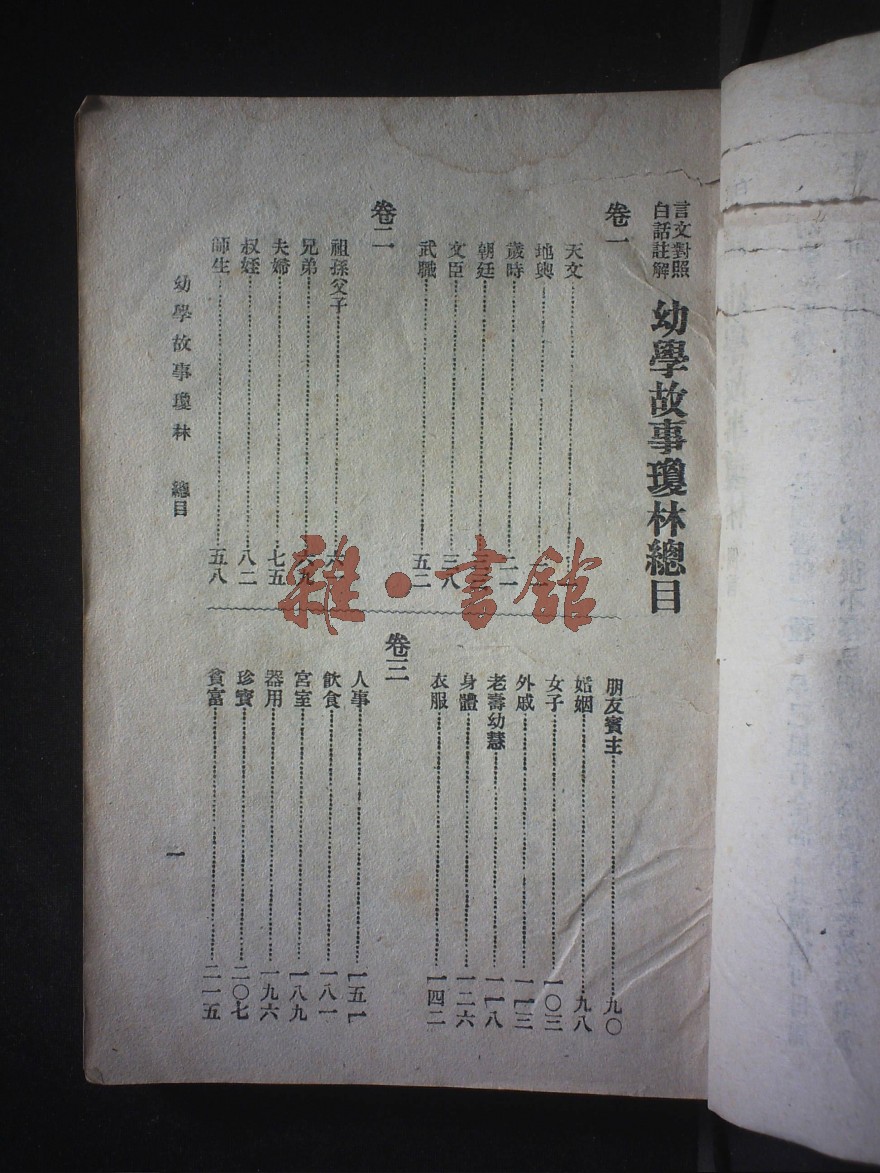 言文對照
白話註解
幼學故事瓊林總目
卷一
天文
地輿
歲時 二一
朝廷
文臣 三八
武職 五二
卷二
祖孫父子
兄弟 六九
夫婦 七五
叔姪 八二
師生 五八
朋友賓主 九〇
婚姻 九八
女子 一〇三
外戚 一一三
老壽幼慧 一一八
身體 一二六
衣服 一四二
卷三
人事 一五一
飲食 一八一
宮室 一八九
器用 一九六
珍寶 二〇七
貧富 二一五
幼學故事瓊林 總目
一
雜·書館